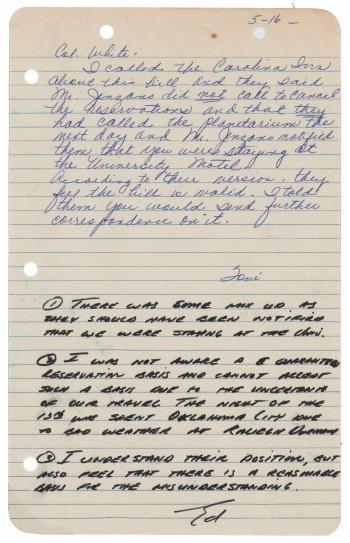 5-16-
Col. White-
I called the Carolina Inn
about this bill and they said
Mr. Jenzano did not call to cancel
the reservations and that they
had called the planetarium the
next day and Mr. Jenzano notified
them that you were staying at
the University Motel.
According to their version, they
feel the bill is valid. I told
them you would send further
correspondence on it.
Toni
① THERE WAS SOME MIX UP AS
THEY SHOULD HAVE BEEN NOTIFIED
THAT WE WERE STAYING AT THE UNIV.
② I WAS NOT AWARE A GUARANTEED
RESERVATION BASIS AND CANNOT ACCEPT
SUCH A BASIS DUE TO THE UNCERTAINTY
OF OUR TRAVEL THE NIGHT OF THE
13th WAS SPENT OKLAHOMA CITY DUE
TO BAD WEATHER AT RALEIGH DURHAM
③ I UNDERSTAND THEIR POSITION, BUT
ALSO FEEL THAT THERE IS A REASONABLE
BASIS FOR THE MISUNDERSTANDING.
Ed